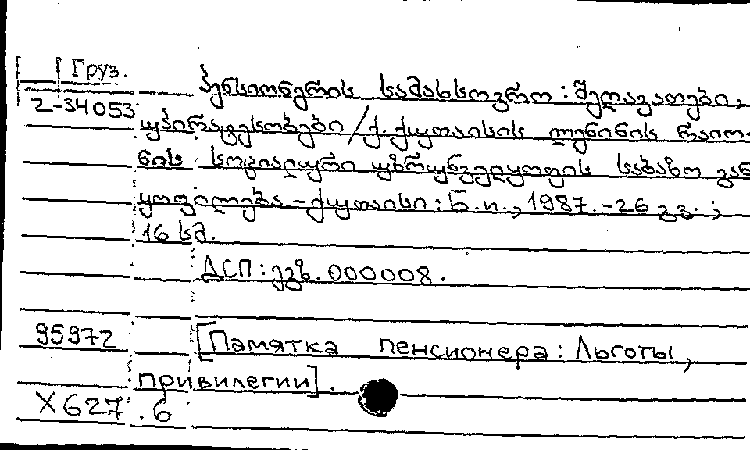 Груз.
2-34053 პენსიონერის სამახსოვრო: შეღავათები,
უპირატესობები/ქ. ქუთაისის ლენინის რაიო-
ნის სოციალური უზრუნველყოფის საბაზო გან
ყოფილება - ქუთაისი: Б.и., 1987. - 26 გვ.;
16 სმ.
ДСП: ეგზ. 000008.
95972 [Памятка пенсионера: Льготы,
привилегии].
X627.6